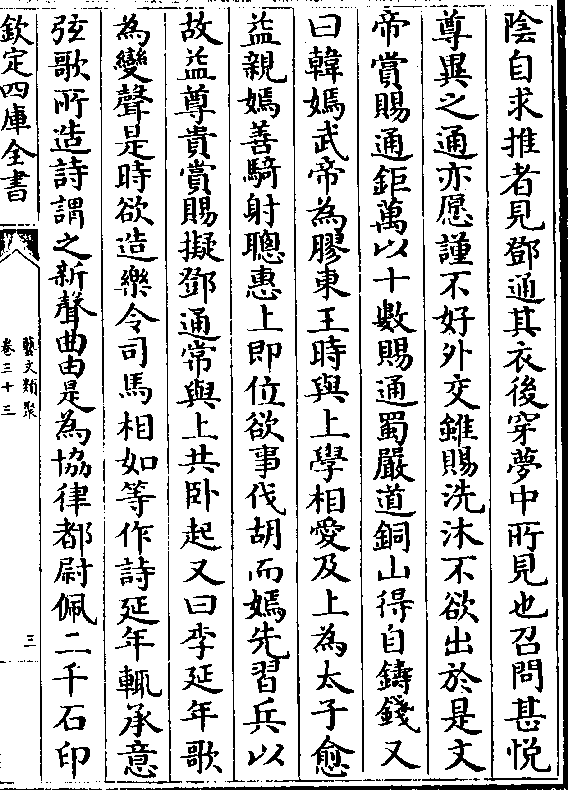 陰自求推者見鄧通其衣後穿夢中所見也召問甚悅
尊異之通亦愿謹不好外交雖賜洗沐不欲出於是文
帝賞賜通鉅萬以十數賜通蜀嚴道銅山得自鑄錢又
曰韓嫣武帝為膠東王時與上學相愛及上為太子愈
益親嫣善騎射聰惠上即位欲事伐胡而嫣先習兵以
故益尊貴賞賜擬鄧通常與上共卧起又曰李延年歌
為變聲是時欲造樂令司馬相如等作詩延年輒承意
弦歌所造詩謂之新聲曲由是為協律都尉佩二千石印
欽定四庫全書
藝文類聚
卷三十三
三